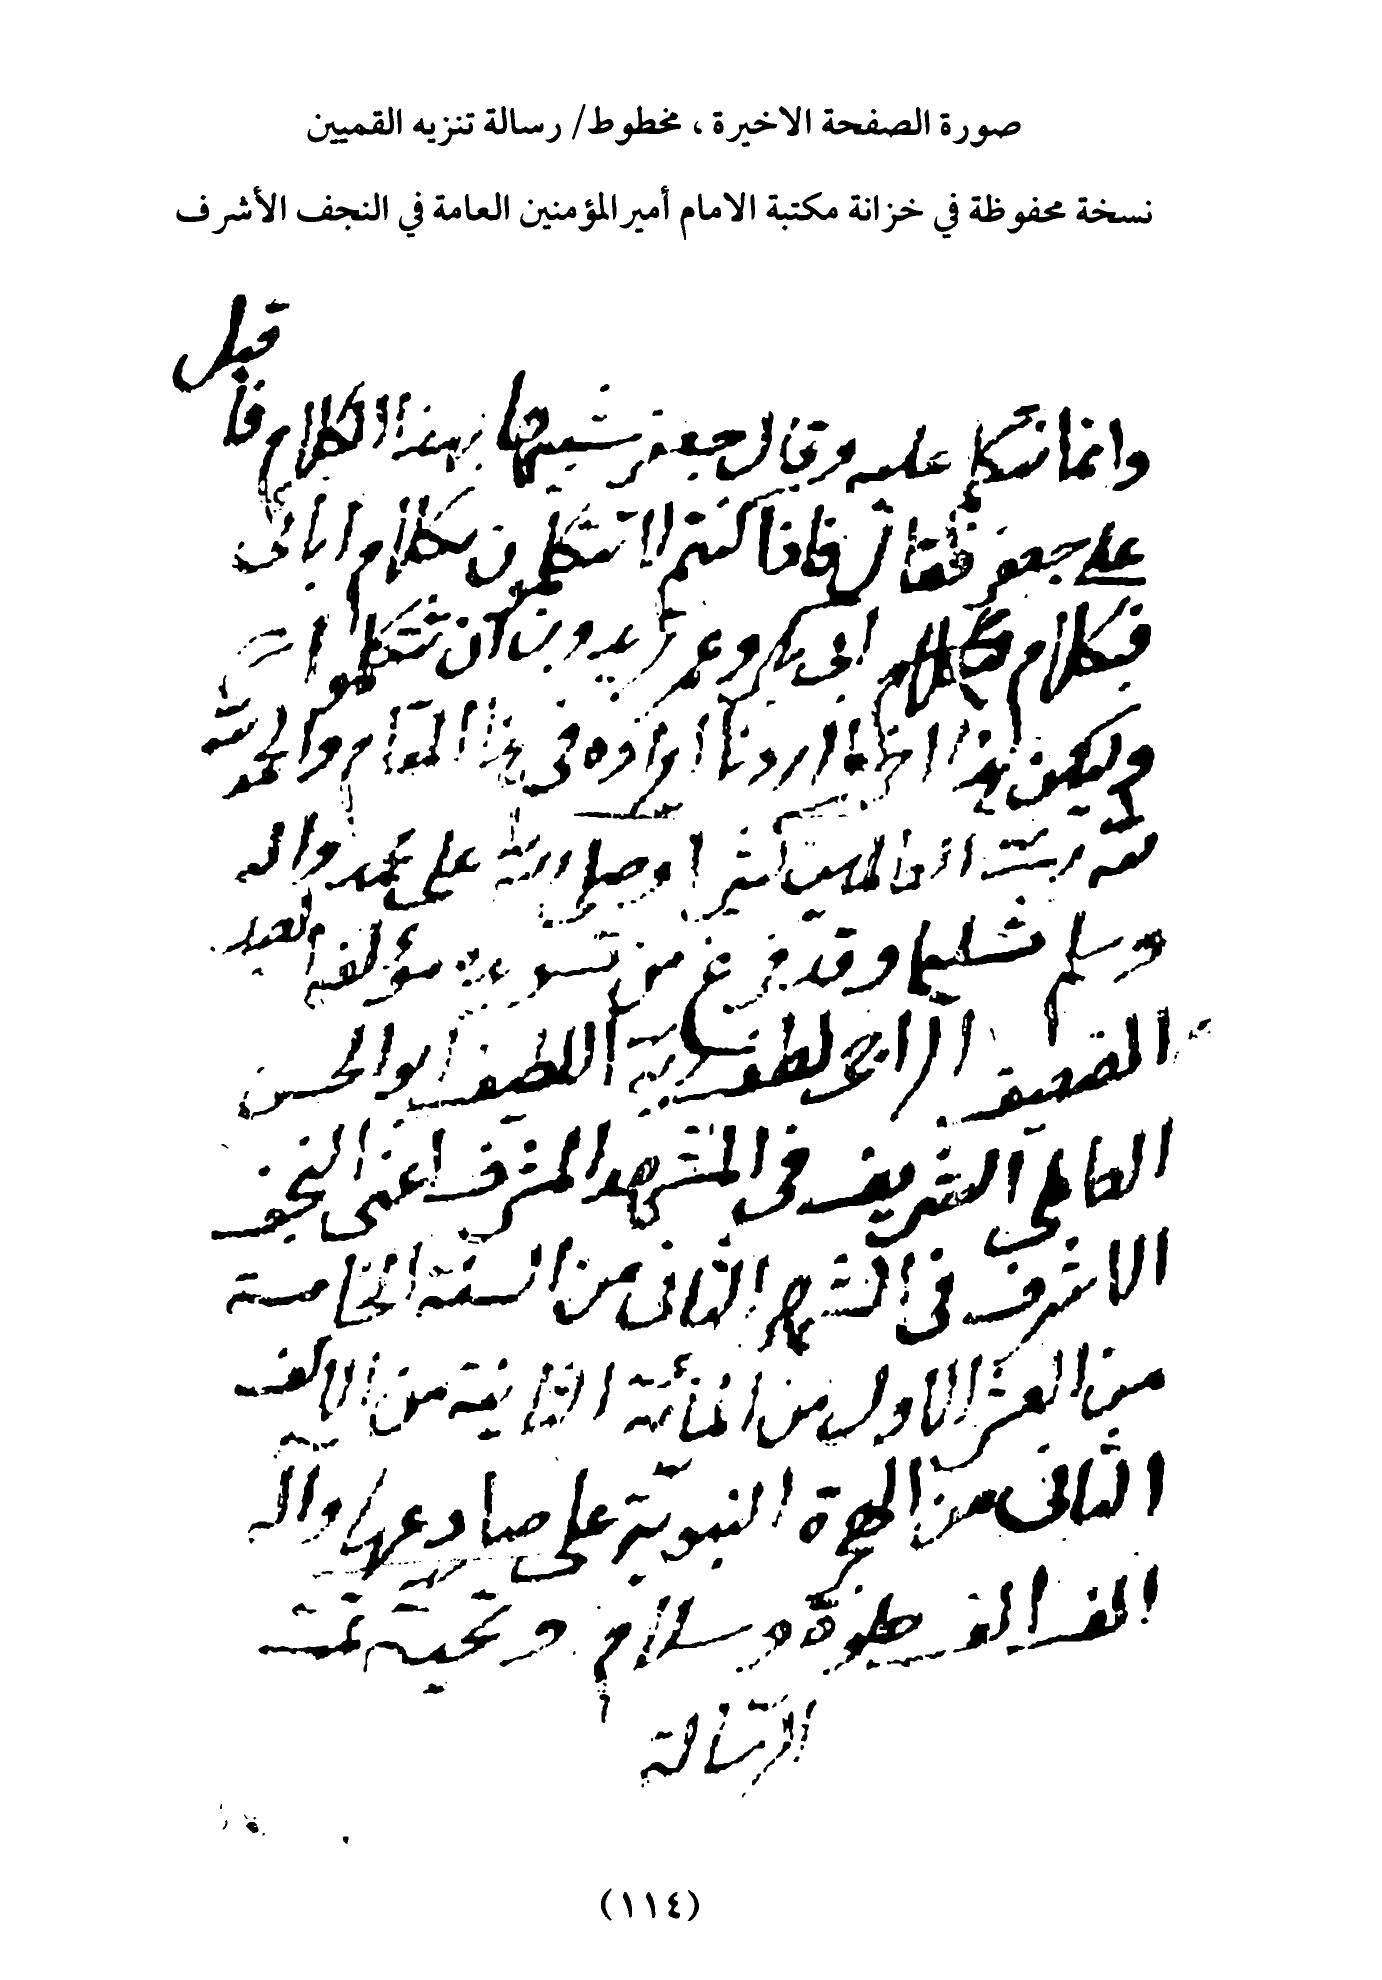 صورة الصفحة الاخيرة ، مخطوط/ رسالة تنزيه القميين
نسخة محفوظة في خزانة مكتبة الامام أمير المؤمنين العامة في النجف الأشرف
قبل
وانما نتكلم عليه وقال جعفر شبيها بهذا الكلام فا
على جعفر فقال فاذا كنتم لا تتكلمون بكلام ابائى
فبكلام ابى بكر وعمر تريدون ان تتكلموا
وليكن هذا اخر ما اردنا ايراده فى هذا المقام والحمد
لله رب العالمين كثيرا وصلى الله على محمد واله
وسلم تسليما وقد فرغ من تسويده مؤلفه العبد
الضعيف الراجى لطف ربه اللطيف ابو الحسن
العاملى الشريف فى المشهد المشرف اعنى النجف
الاشرف فى الشهر الثانى من السنة الخامسة
من العشر الاول من المأئة الثانية من الالف
الثانى من الهجرة النبوية على صادعها واله
الف الف صلوة وسلام وتحية تمت
الرسالة
(١١٤)